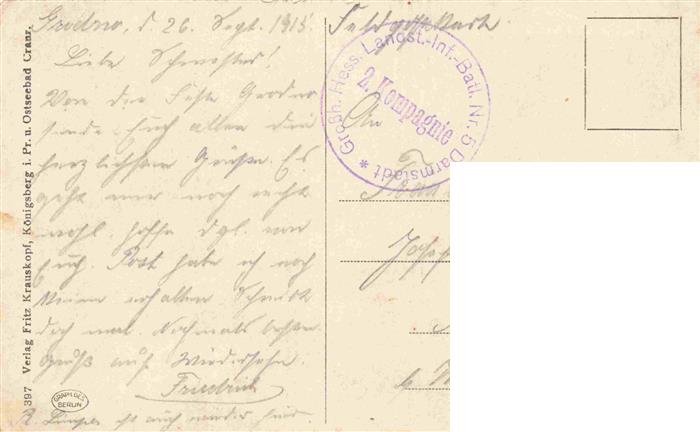 Grodno, d 26. Sept. 1915.
Liebe Schwester!
Von der Feste Grodno
sende Euch allen die
herzlichsten Grüße. Es
geht mir noch recht
wohl, hoffe dgl. von
Euch. Post habe ich noch
keine erhalten. Schreibt
doch mal. Nochmals besten
Gruß auf Wiedersehn.
Friedrich
ist auch wieder hier.
Feldpostkarte
Großh. Hess. Landst.-Inf.-Batl. Nr. 5 Darmstadt *
2. Kompagnie
An
Frau
Josef
397 Verlag Fritz Krauskopf, Königsberg i. Pr. u. Ostseebad Cranz.
GRAPH.GES.
BERLIN